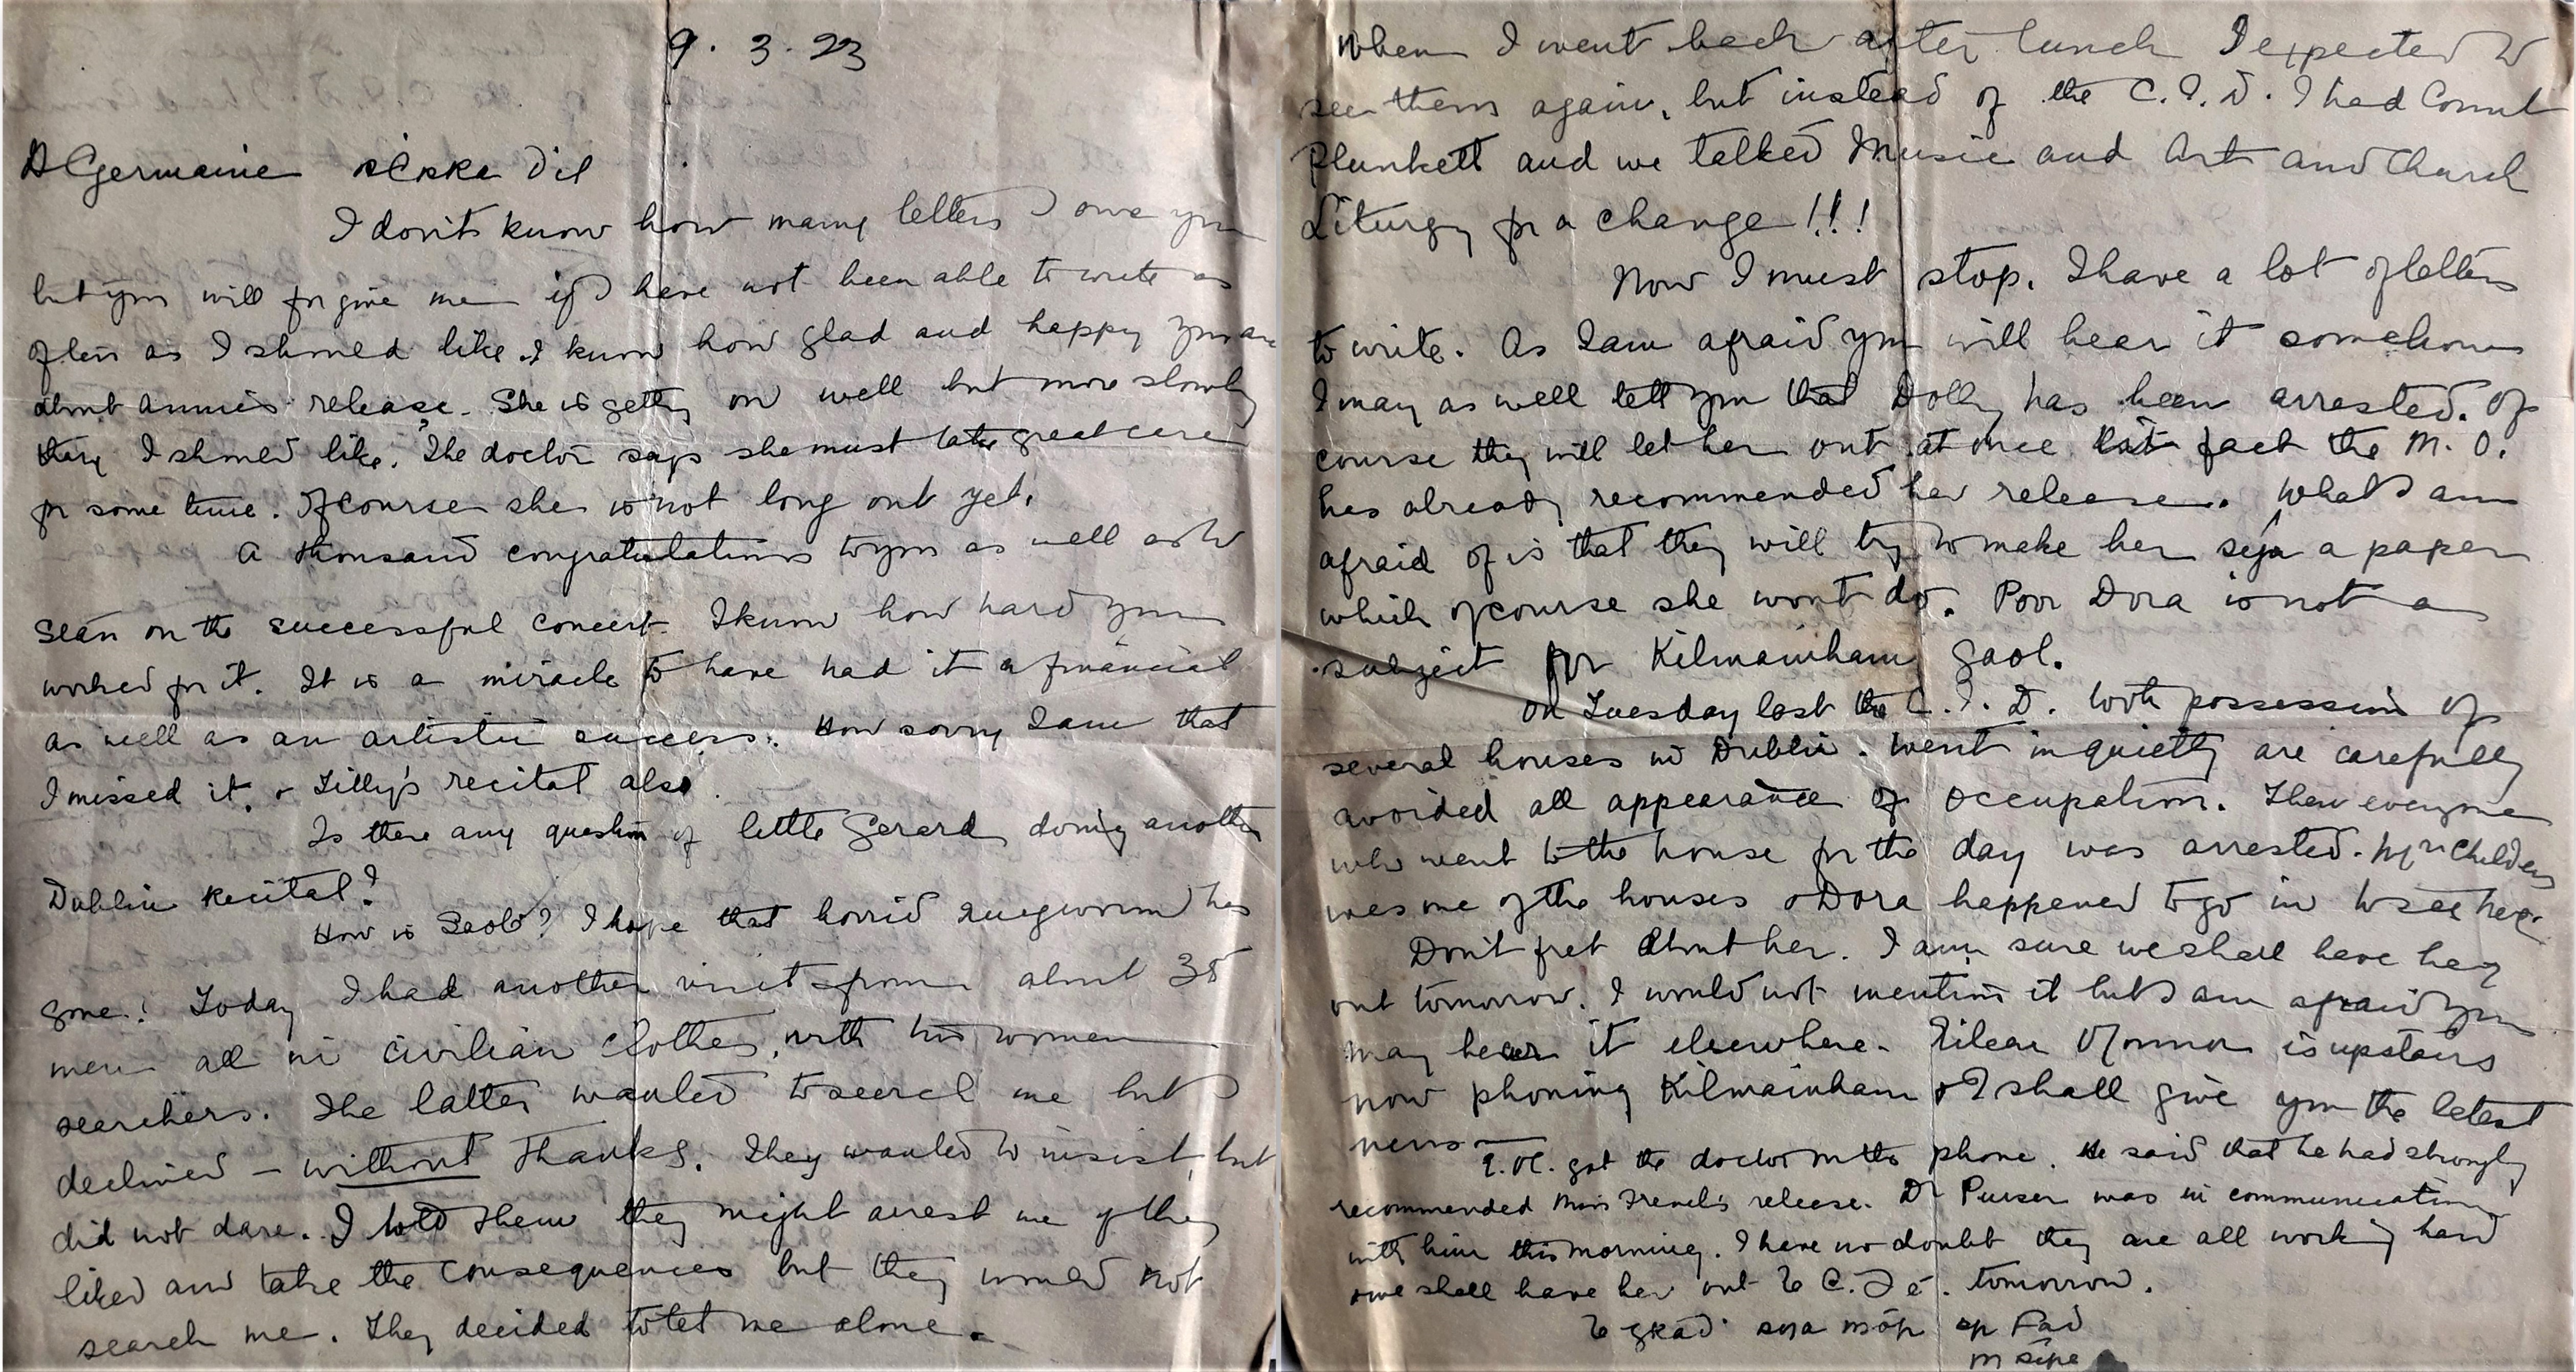 9. 3. 23
A Germaine a Ċara Ḋil
I don't know how many letters I owe you
but you will forgive me if I have not been able to write as
often as I should like. I know how glad and happy you are
about Annie's release. She is getting on well but more slowly
than I should like. The doctor says she must take great care
for some time. Of course she is not long out yet.
A thousand congratulations to you as well as to
Seán on the successful concert. I know how hard you
worked for it. It is a miracle to have had it a financial
as well as an artistic success. How sorry I am that
I missed it, & Tilly's recital also.
Is there any question of little Gerard doing another
Dublin Recital?
How is ? I hope that horrid ringworm has
gone! Today I had another visit from about 35
men all in civilian clothes, with two women
searchers. The latter wanted to search me but I
declined – without thanks. They wanted to insist, but
did not dare. I told them they might arrest me if they
liked and take the consequences but they would not
search me. They decided to let me alone.
When I went back after lunch I expected to
see them again, but instead of the C.I.D. I had Count
Plunkett and we talked Music and Art and Church
Liturgy for a change!!!
Now I must stop. I have a lot of letters
to write. As I am afraid you will hear it somehow
I may as well tell you that Dolly has been arrested. Of
course they will let her out at once fact the M.O.
has already recommended her release. What I am
afraid of is that they will try to make her sign a paper
which of course she wont do. Poor Dora is not a
subject for Kilmainham Gaol.
On Tuesday last the C.I.D. took possession of
several houses in Dublin. Went in quietly are carefully
avoided all appearance of occupation. Then everyone
who went to the house for the day was arrested. Mrs Childers
was one of the houses & Dora happened to go in to see her.
Don't fret about her. I am sure we shall have her
out tomorrow. I would not mention it but I am afraid you
may hear it elsewhere. Eileen O'Connor is upstairs
now phoning Kilmainham & I shall give you the latest
news —
E. OC. got the doctor on the phone. He said that he had strongly
recommended Miss French's release. Dr Purser was in communication
with him this morning. I have no doubt they are all working hard
& we shall have her out tomorrow.
Le grád mór